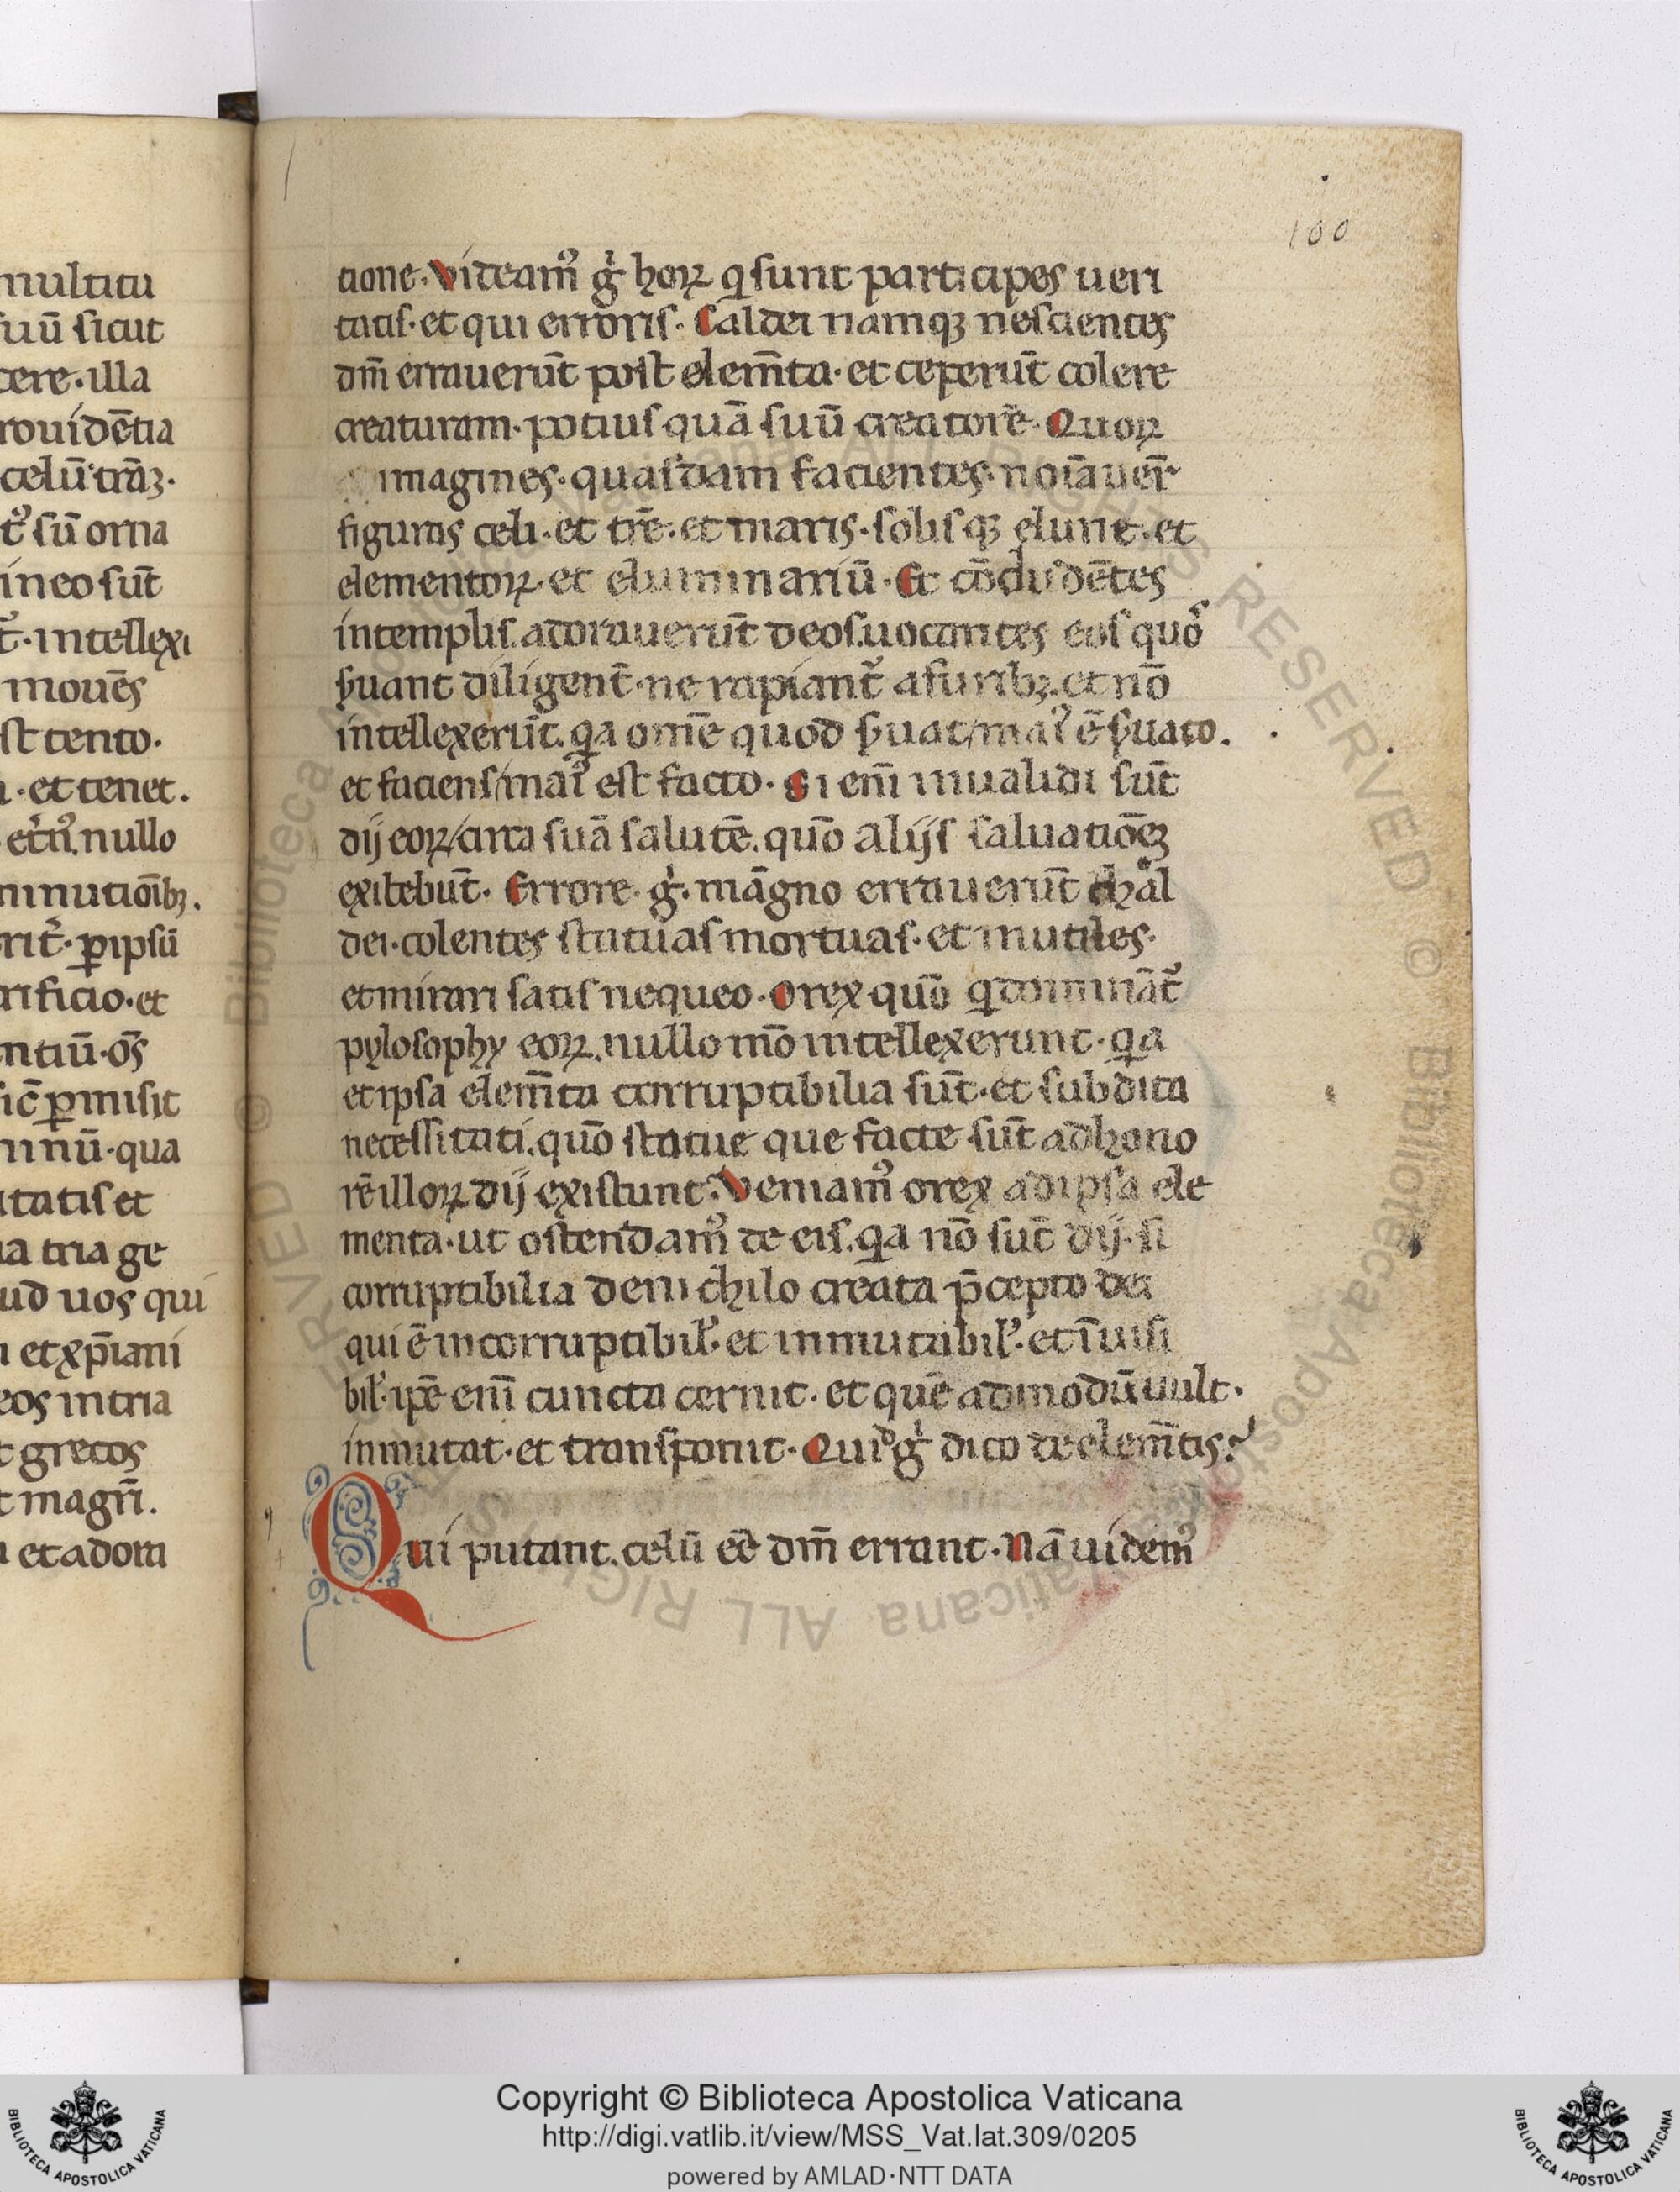 100
multitu
suū sicut
cere. illa
rouidētia
celū trāꝫ.
sū orna
ineo sūt
intellexi
mouēs
st tento.
et tenet.
nullo
minutiōibꝫ.
ꝑipsū
rificio. et
ntiū. oēs
ꝑmisit
minū. qua
itatis et
ia tria ge
ud uos qui
et xp̄iani
eos intria
grecos
magr̄i.
et adora
tione. Videam᷒ gͥ hoꝝ q sunt participes ueri
tatis. et qui erroris. Caldei namqꝫ nescientes
dm̄ errauerūt post elem̄ta. et ceperūt colere
creaturam. potius quā suū creatorē. Quoꝝ
imagines. quasdam facientes. noīauer̄
figuras celi. et tr̄e. et maris. solisqꝫ elune. et
elementoꝝ. et eluminariū. Et cōcludētes
intemplis. adorauerūt deos. uocantes eos quos
ẜuant diligent̄. ne rapiant᷑ afuribꝫ. et nō
intellexerūt. qa omē quod ẜuat/mai᷒ ē ẜuato.
et faciens/mai᷒ est facto. Si em̄ inualidi sūt
dij eoꝝ/circa suā salutē. quō alijs saluatiōeꝫ
exibebūt. Errore. gͥ. māgno errauerūt chal
dei. colentes statuas mortuas. et inutiles.
et mirari satis nequeo. Orex quō q dominānt᷑
pylosophy eoꝝ. nullo mō intellexerunt. qa
et ipsa elem̄ta corruptibilia sūt. et subdita
necessitati. quō statue que facte sūt adhono
rē illoꝝ dij existunt. Veniam᷒ orex adipsa ele
menta. ut ostendam᷒ de eis. qa nō sūt dij. si
corruptibilia deni chilo creata p̄cepto dei
qui ē incorruptibil᷒. et inmutabil᷒. et īuisi
bil᷒. ip̄e em̄ cuncta cernit. et quē admodū uult.
inmutat. et transponit. Quid gͥ dico de elem̄tis?
Qui putant. celū eē dm̄ errant. Nā uidem᷒
Copyright © Biblioteca Apostolica Vaticana
http://digi.vatlib.it/view/MSS_Vat.lat.309/0205
powered by AMLAD·NTT DATA
BIBLIOTECA APOSTOLICA VATICANA
BIBLIOTECA APOSTOLICA VATICANA